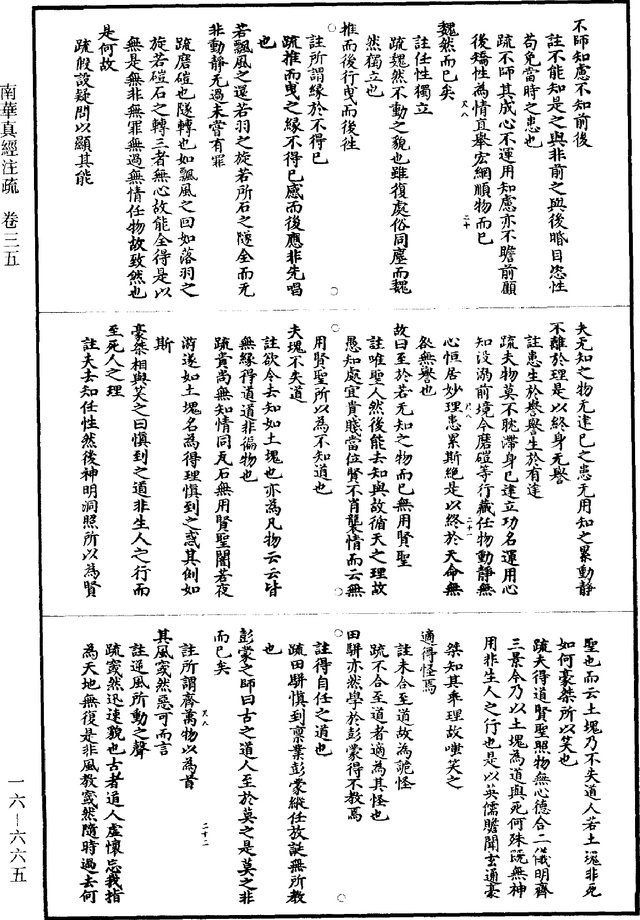 南華真經注疏 卷三五
一六—六六五
不師知慮不知前後
註不能知是之與非前之與後睧目恣性
苟免當時之患也
疏不師其成心不運用知慮亦不瞻前顧
後矯性為情直舉宏網順物而已
魏然而已矣
註任性獨立
疏魏然不動之貌也雖復處俗同塵而魏
然獨立也
推而後行曳而後往
註所謂緣於不得已
疏推而曳之緣不得已感而後應非先唱
也
若飄風之還若羽之旋若所石之隧全而无
非動靜无過未嘗有罪
疏磨磑也隧轉也如飄風之回如落羽之
旋若磑石之轉三者無心故能全得是以
無是無非無罪無過無情任物故致然也
是何故
疏假設疑問以顯其能
夫无知之物无建己之患无用知之累動靜
不離於理是以終身无譽
註患生於譽譽生於有建
疏夫物莫不耽滯身已建立功名運用心
知沒溺前境今磨磑等行藏任物動靜無
心恒居妙理患累斯絕是以終於天命無
咎無譽也
故曰至於若无知之物而已無用賢聖
註唯聖人然後能去知與故循天之理故
愚知處宜貴賤當位賢不肖襲情而云無
用賢聖所以為不知道也
夫塊不失道
註欲令去知如土塊也亦為凡物云云皆
無緣得道道非徧物也
疏貴尚無知情同瓦石無用賢聖闇若夜
游遂如土塊名為得理慎到之惑其例如
斯
豪桀相與笑之曰慎到之道非生人之行而
至死人之理
註夫去知任性然後神明洞照所以為賢
聖也而云土塊乃不失道人若土塊非死
如何豪桀所以笑也
疏夫得道賢聖照物無心德合二儀明齊
三景今乃以土塊為道與死何殊既無神
用非生人之行也是以英儒贍聞玄通豪
桀知其乖理故嗤笑之
適得怪焉
註未合至道故為詭怪
疏不合至道者適為其怪也
田駢亦然學於彭蒙得不教焉
註得自任之道也
疏田駢慎到禀業彭蒙縱任放誕無所教
也
彭蒙之師曰古之道人至於莫之是莫之非
而已矣
註所謂齊萬物以為首
其風窢然惡可而言
註逆風所動之聲
疏窢然迅速貌也古者道人虛懷忘我指
為天地無復是非風教窢然隨時過去何